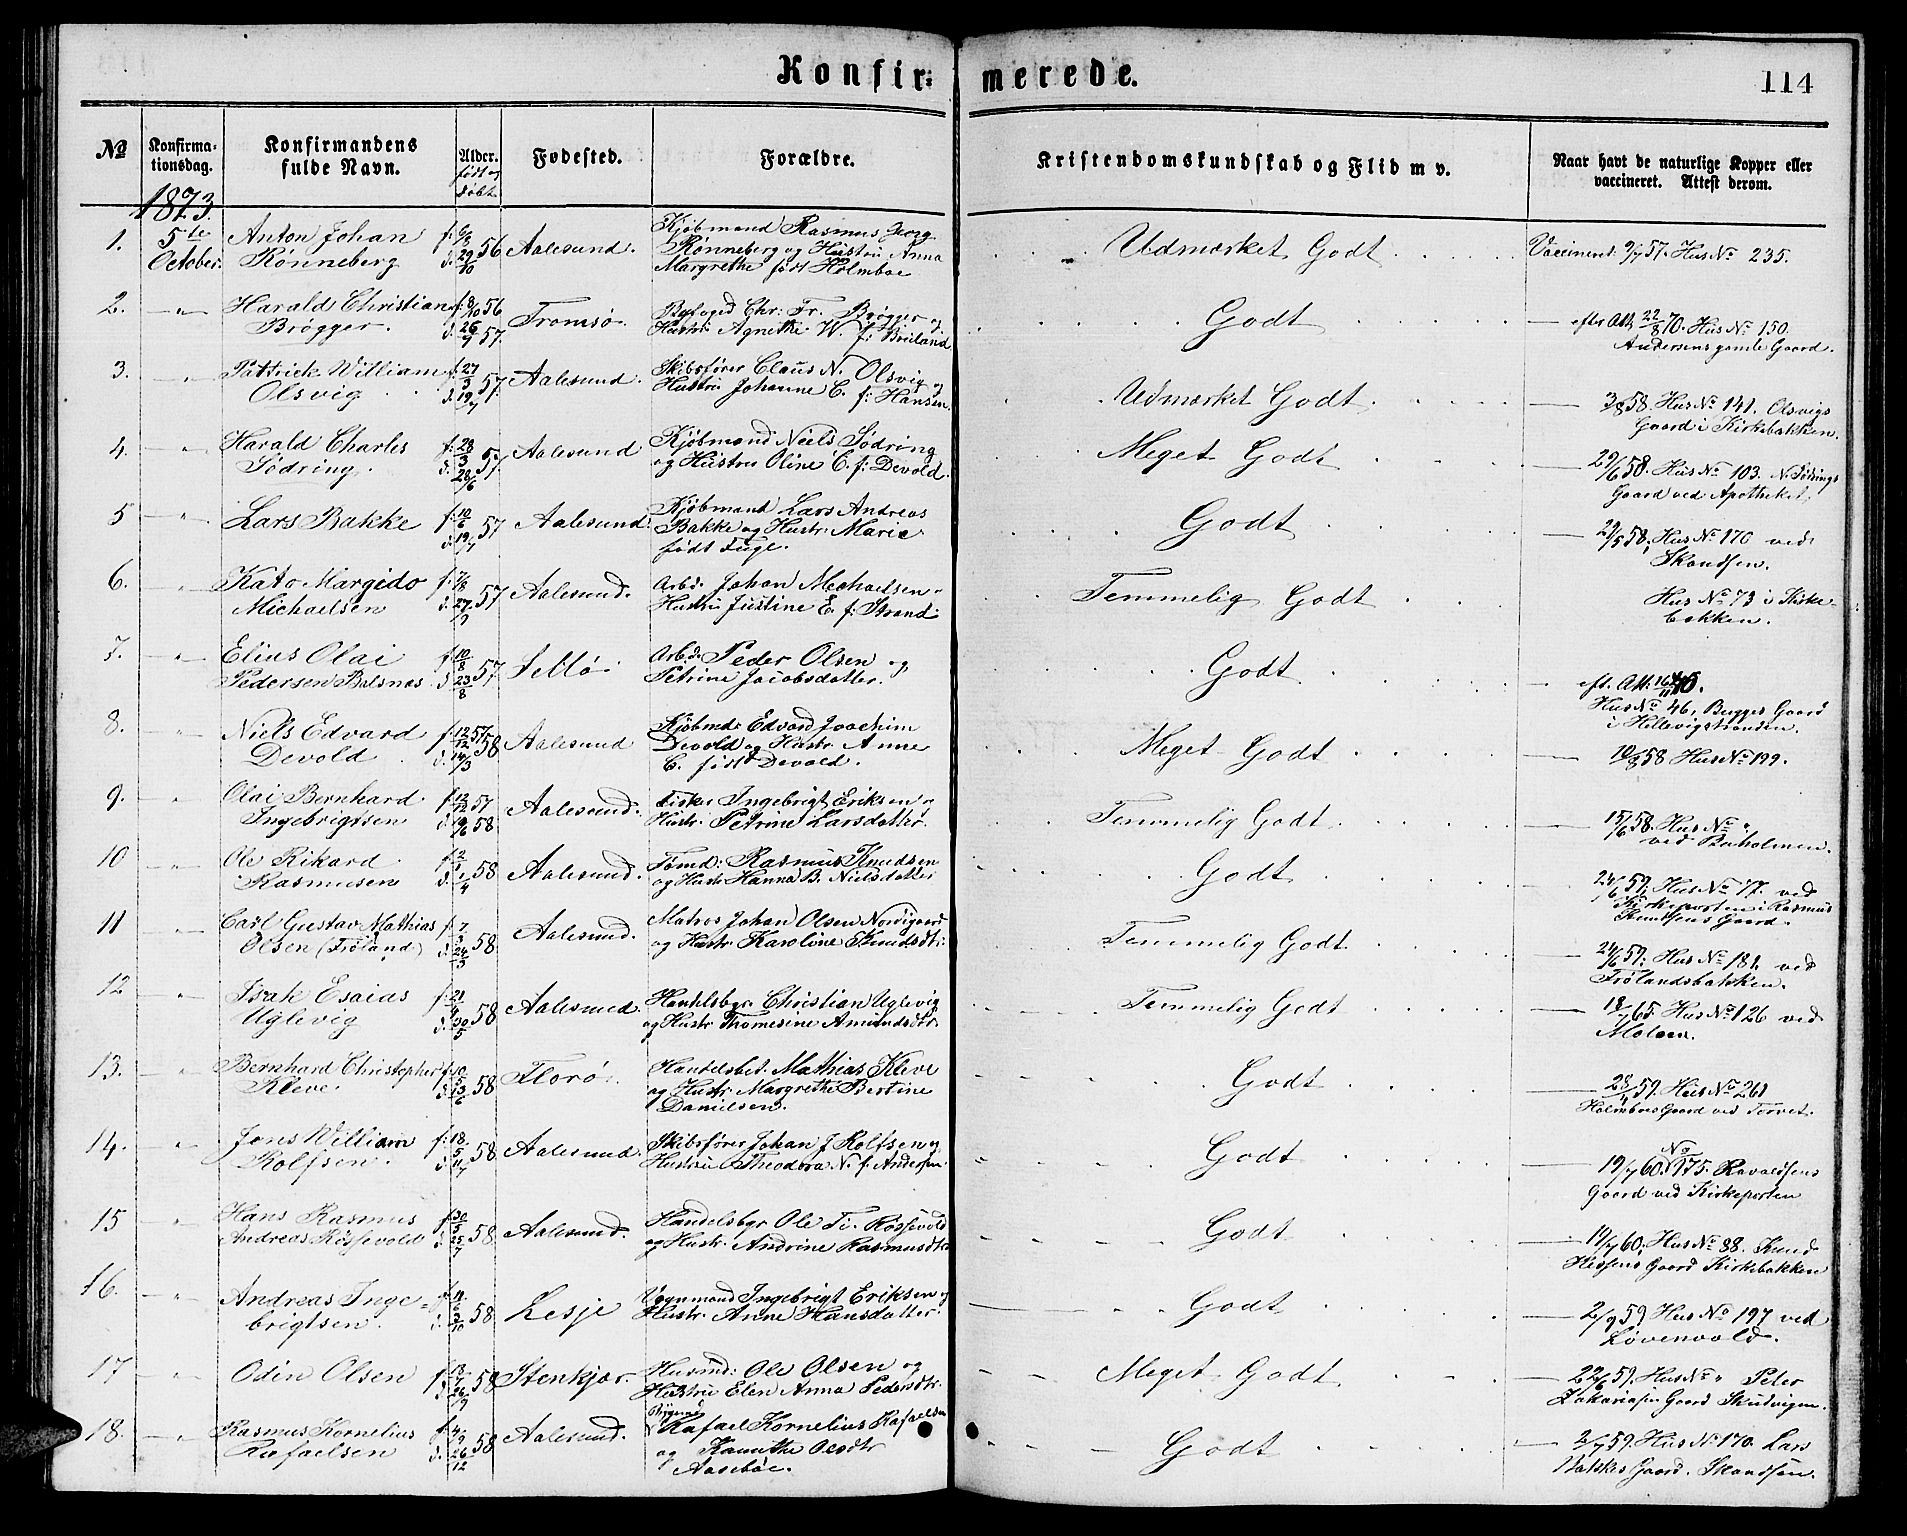 Konfir- merede. 114
№ Konfirma- Konfirmandens Alder. Fødested. Forældre. Kristendomskundskab og Flid m v. Naar havt de naturlige Kopper eller
tionsdag. fulde Navn. født og vaccineret. Attest derom.
døbt
1873.
1. 5te Anton Johan f. 6/8 56 Aalesund. Kjøbmand Rasmus Georg Udmærket Godt Vaccineret 9/7 57. Hus № 235.
October. Rønneberg d. 29/10 Rønneberg og Hustru Anna
Margrethe født Holmboe
2. " Harald Christian f. 8/10 56 Tromsø. Byfoged Chr: Fr. Brøgger og Godt efter Att. 22/8 70. Hus № 150.
Brøgger. d. 26/7 57. Hustru Agnethe W. f: Andersens gamle Gaard.
3. " Pattrick William f. 27/3 57 Aalesund. Skibsfører Claus N. Olsvig og Udmærket Godt 3/8 58. Hus № 141. Olsvigs
Olsvig d. 19/7 Hustru Johanne C. f: Hansen. Gaard i Kirkebakken.
4. " Harald Charles f. 28/3 57. Aalesund Kjøbmand Niels Sødring Meget Godt 29/6 58. Hus № 103. N. Sødrings
Sødring. d. 28/6 og Hustru Oline C. f: Devold. Gaard ved Apotheket.
5 " Lars Bakke f. 10/6 57 Aalesund. Kjøbmand Lars Andreas Godt 29/5 58. Hus № 170 ved
d. 19/7 Bakke og Hustr. Marie Skandsen.
født Fuge.
6. " Kato Margido f. 7/8 57 Aalesund. Arbd. Johan Mechaelsen Temmelig Godt Hus № 73 i Kirke-
Michaelsen d. 27/9 Hustru Justine E f: Strand bakken.
7. " Elius Olai f. 10/8 57 Arbd. Peder Olsen og Godt eft. Att:
Pedersen Balsnes d 23/8 Petrine Jacobsdatter. Hus № 46, Bugges Gaard
i Hellevigstranden.
8. " Niels Edvard f. 12/12 57 Aalesund Kjøbmd. Edvard Joachim Meget Godt 10/8 58 Hus № 199.
Devold d. 14/3 58 Devold og Hustr Anne
C. født Devold.
9. " Olai Bernhard f. 12/12 57 Aalesund. Fisker Ingebrigt Eriksen og Temmelig Godt 15/6 58. Hus № "
Ingebrigtsen d. 58. Hustr. Petrine Larsdatter. ved Buholmen.
10 " Ole Rikard f. 58 Aalesund. Tømd: Rasmus Knudsen Godt 24/6 59. Hus № 77. ved
Rasmusen d. 1/4 og Hustr Hanna B. Nielsdatter Kirkeporten i Rasmus
Knutsens Gaard.
11 " Carl Gustav Mathias f. 58. Aalesund. Matros Johan Olsen Nordgaard Temmelig Godt 24/6 59. Hus № 181. ved
Olsen (Frøland) d. 24/3 og Hustr Karoline Knudsdtr: Frølandsbakken.
12 " Isak Esaias f. 21/4 58 Aalesund. Handelsbgr. Christian Uglevig Temmelig Godt 18/7 65. Hus № 126 ved
Uglevig d. 30/5 og Hustr Thomesine Amundsdtr. Moloen.
13. " Bernhard Christopher f. 10/5 58 Florø. Handelsbet. Mathias Kleve Godt Hus № 261
Kleve. d. 13/6 og Hustr Margrethe Bertine Holmboes Gaard ved Torvet.
Danielsen.
14. " Jens William f: 18/5 58 Aalesund. Skibsfører Johan J Rolfsen og Godt 19/7 60. № 175. Rovaldsens
Rolfsen. d. 11/7 Hustru Theodora N. f. Andersen Gaard ved Kirkeporten
15 " Hans Rasmus f. 30/5 58. Aalesund. Handelsbgr Ole Ti. Røssevold Godt 19/7 60. Hus № 88. Knud
Andreas Røssevold d. 25/7 og Hustr. Andrine Rasmusdtr Gaard Kirkebakken
16. " Andreas Inge- f. 58 Lesje Vognmand Ingebrigt Eriksen og Godt 2/9 59 Hus № 197 ved
brigtsen. d. 3/10 Hustr. Anne Hansdatter. Løvenvold.
17 " Odin Olsen f. 13/7 58 Stenkjær. Husmd: Ole Olsen og Meget Godt 22/6 59. Hus № " Peter
d. 26/9 Hustru Elen Anna Pedersdtr. Zakariasen Gaard Skudvigen.
18. " Rasmus Kornelius f. 4/9 58 Aalesund. Rafael Kornelius Rafaelsen Godt 2/7 59. Hus № 170. Lars
Rafaelsen d. 26/12 og Olsdtr Bakkes Gaard. Skandsen.
Aasebøe.